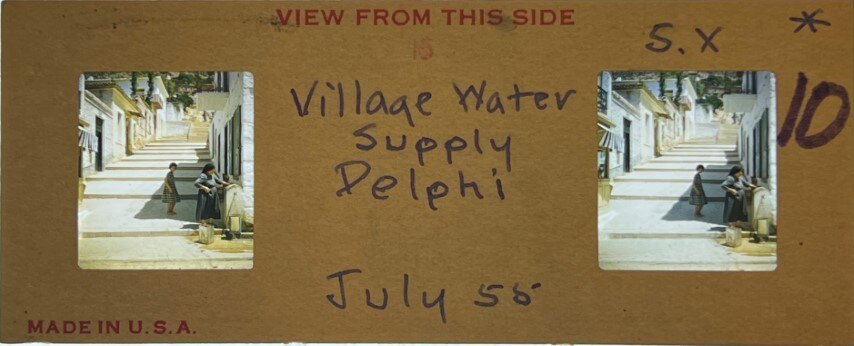 VIEW FROM THIS SIDE
15
S.X *
10
Village Water
Supply
Delphi
July 55
MADE IN U.S.A.